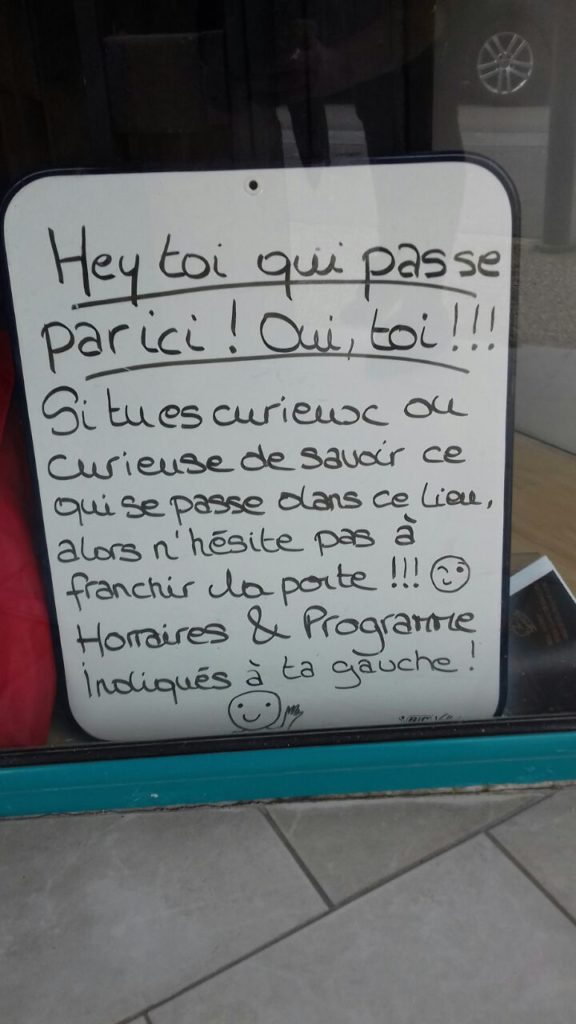 Hey toi qui passe
par ici ! Oui, toi !!!
Si tu es curieux ou
curieuse de savoir ce
qui se passe dans ce lieu,
alors n'hésite pas à
franchir la porte !!!
Horraires & Programme
indiqués à ta gauche !